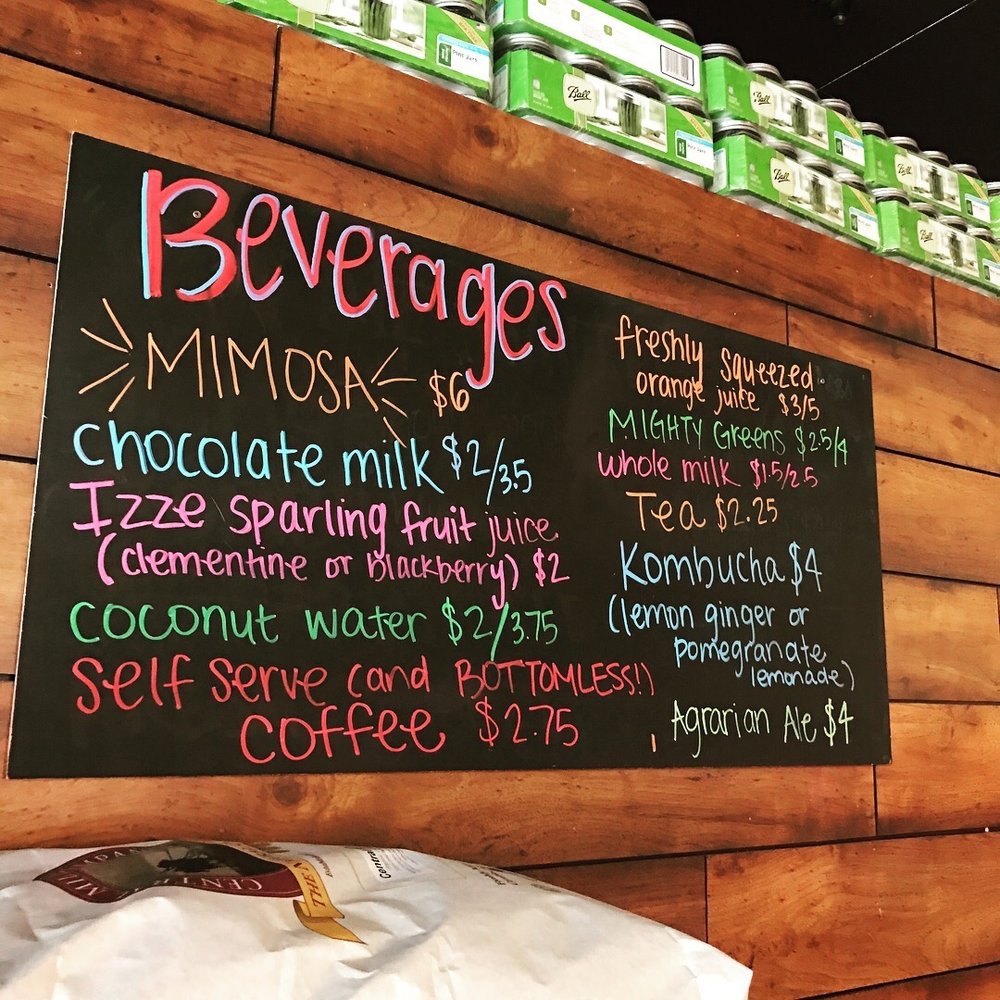 Beverages
MIMOSA $6
chocolate milk $2/3.5
Izze sparling fruit juice
(clementine or blackberry) $2
coconut water $2/3.75
self serve (and BOTTOMLESS!)
coffee $2.75
freshly squeezed
orange juice $3/5
MIGHTY Greens $2.5/4
whole milk $1.5/2.5
Tea $2.25
Kombucha $4
(lemon ginger or
pomegranate
lemonade)
Agrarian Ale $4
Ball
Ball
Ball
Ball
Ball
Ball
CENTRAL
THE